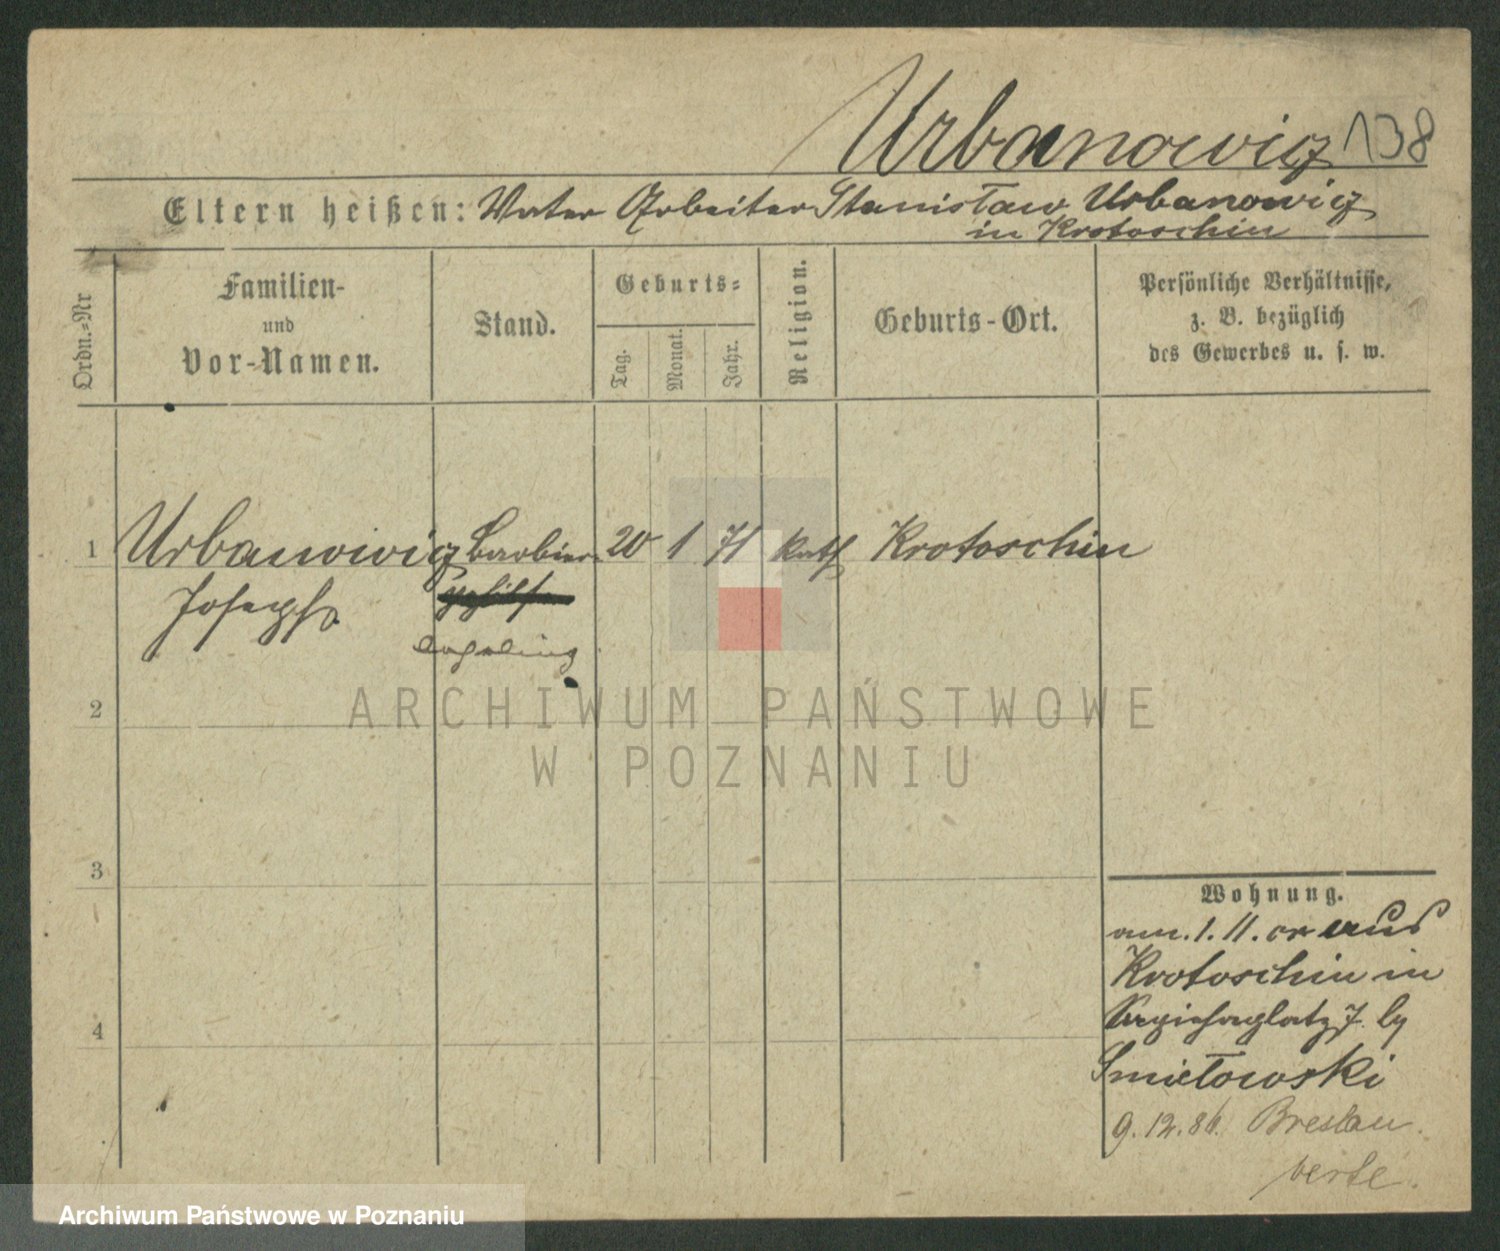 Urbanowicz 138
Eltern heißen: Vater Arbeiter Stanisław Urbanowicz
in Krotoschin
Ordn.=Nr
Familien-
und
Vor-Namen.
Stand.
Geburts=
Tag.
Monat.
Jahr.
Religion.
Geburts-Ort.
Persönliche Verhältnisse,
z. B. bezüglich
des Gewerbes u. s. w.
1 Urbanowicz Barbier 20 1 71 kath Krotoschin
Joseph
2
3
4
Wohnung.
am. 1. 11. cr aus
Krotoschin in
7
Smiełowski
9. 12. 86. Breslau
ARCHIWUM PAŃSTWOWE
W POZNANIU
Archiwum Państwowe w Poznaniu